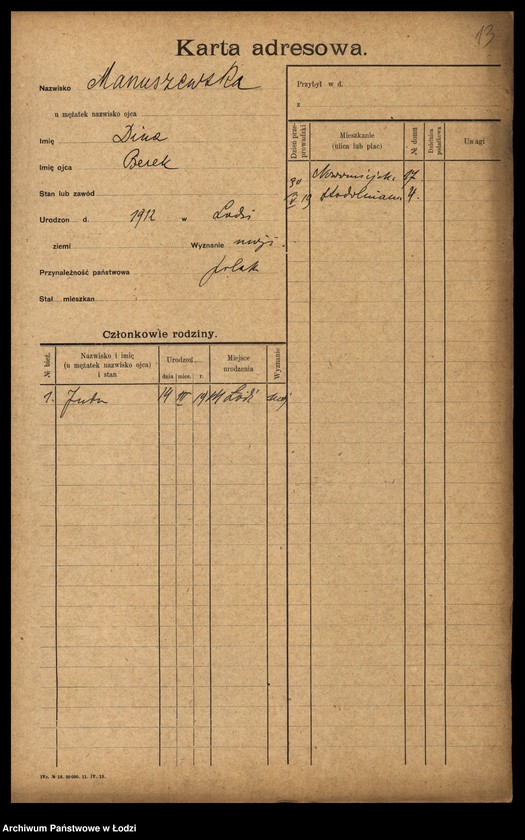 13
Karta adresowa.
Nazwisko Manuszewska
u mężatek nazwisko ojca
Imię Dina
Imię ojca Berek
Stan lub zawód
Urodzon d. 1912 w Lodzi
ziemi Wyznanie mojż.
Przynależność państwowa polsk
Stał. mieszkan
Przybył w d.
z
Dzień przeprowadzki Mieszkanie (ulica lub plac) № domu Dzielnica podatkowa Uwagi
30 17
V 19 Stodolniana 4.
Członkowie rodziny.
№ bież. Nazwisko i imię (u mężatek nazwisko ojca) i stan Urodzon dnia mies. r. Miejsce urodzenia Wyznanie
1. Juta 14 III 1914 Łódź moj
IVz. № 18. 80000. 11. IV. 18.
Archiwum Państwowe w Łodzi